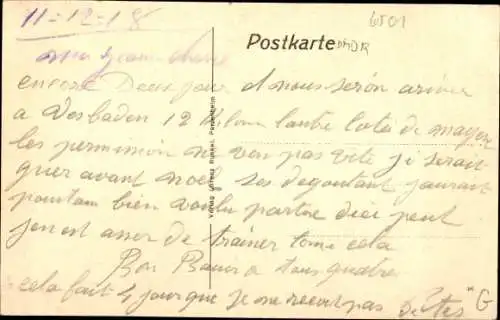 11=12=18
6501
Postkarte
encore Deux jour et nous seron arriver
a Vesbaden 12 Kilom lautre coté de mayen
les permission ne von pas vite je serait
guer avant noel ses degoutant jaurait
pourtan bien voulu partire dici peut
jen est asser de trainer tome cela
Bon Baiser a tous quatre
cela fait 4 jour que je ne recoit pas